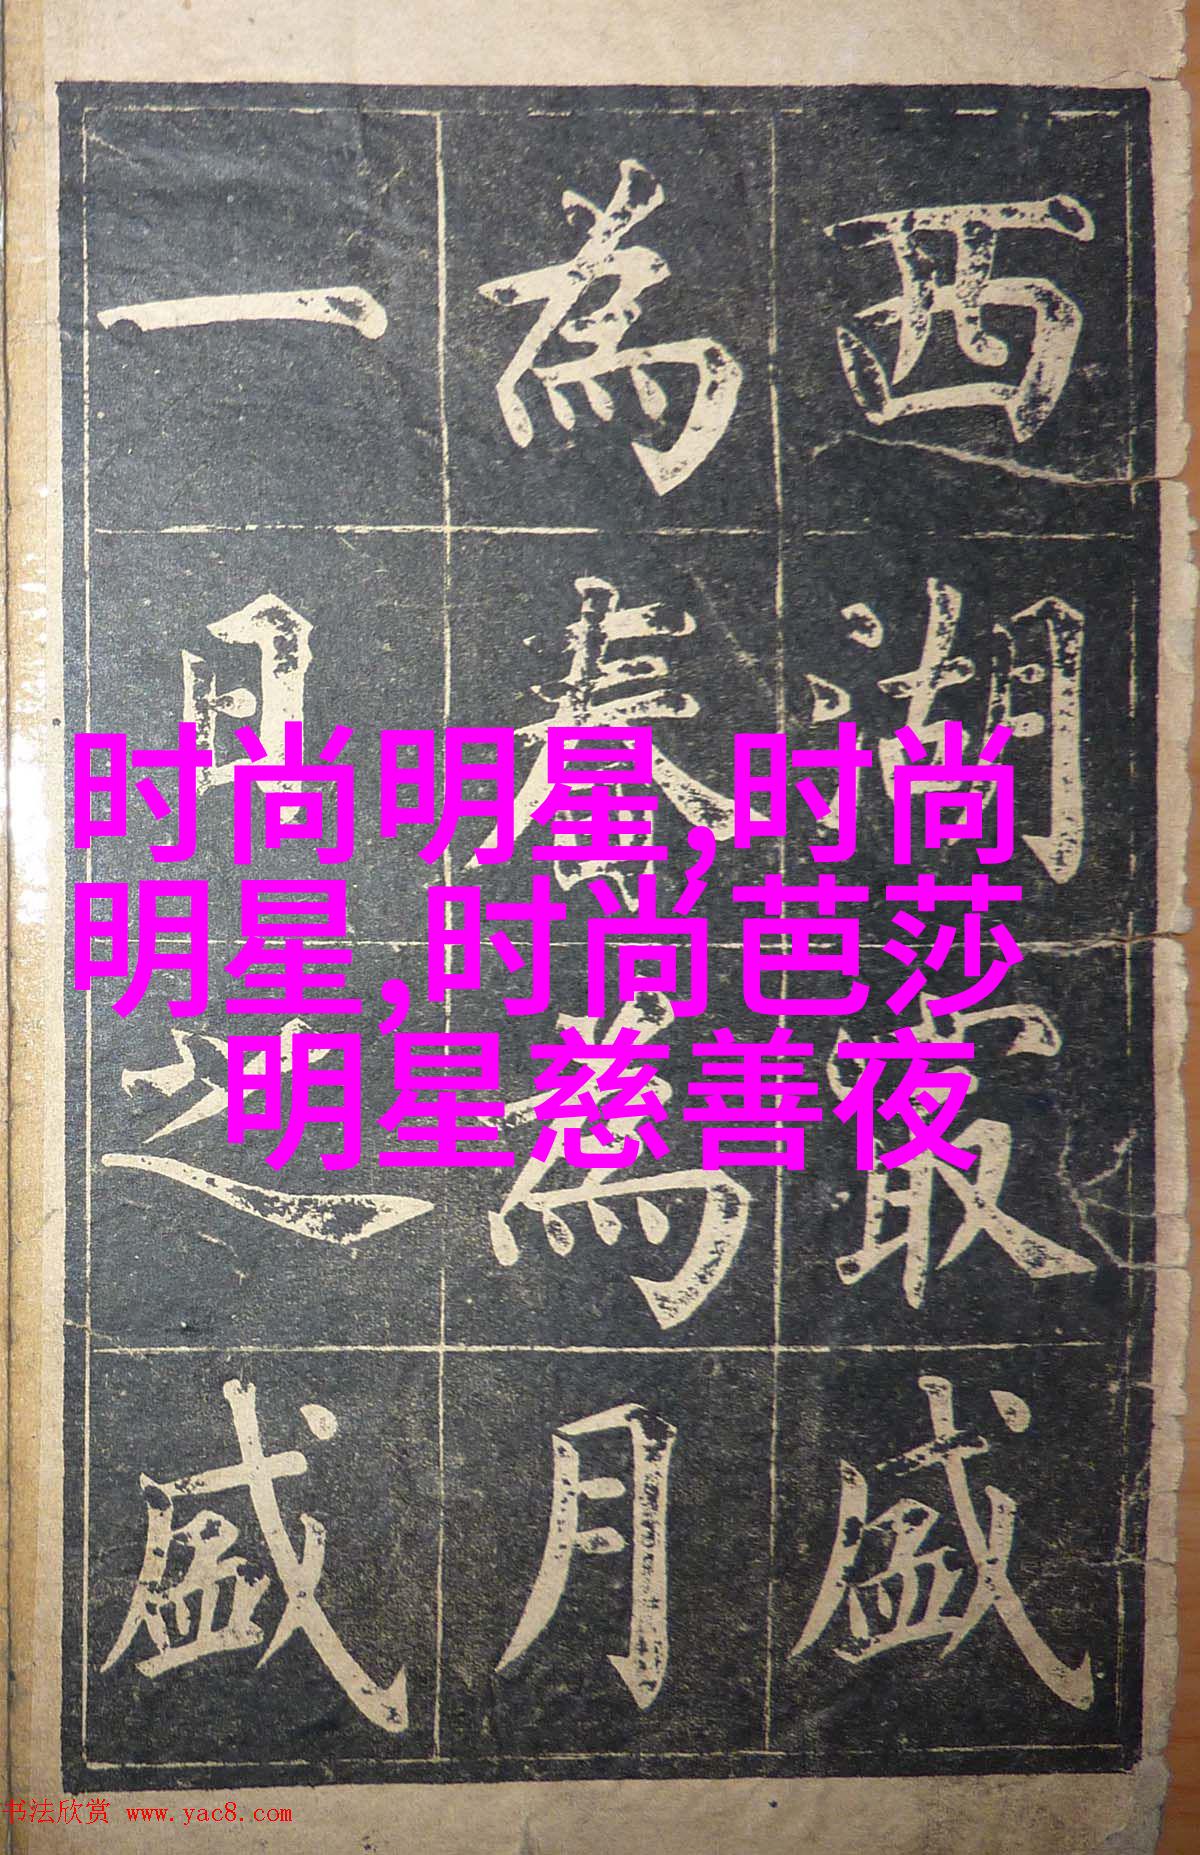 西湖最盛
為春為月
一日之盛
时尚明星,时尚
明星,时尚芭莎
明星慈善夜
书法欣赏 www.yac8.com